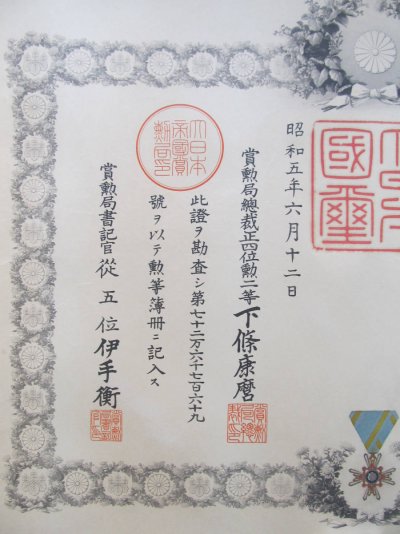 昭和五年六月十二日
國璽
賞勲局總裁正四位勲二等下條康麿
此證ヲ勘査シ第七十二万六千七百六十九
號ヲ以テ勲等簿册ニ記入ス
大日本帝國賞勲局印
賞勲局書記官從五位伊手衡